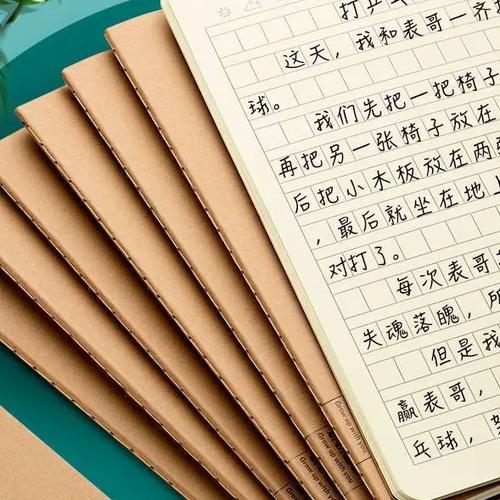 打乒
这天，我和表哥一齐打
球。
我们先把一把椅子
再把另一张椅子放在
后把小木板放在两
，最后就坐在地
对打了。
每次表哥
失魂落魄，所
但是我
赢表哥，
乒球，
Grow up with you
Grow up with you
Grow up with you